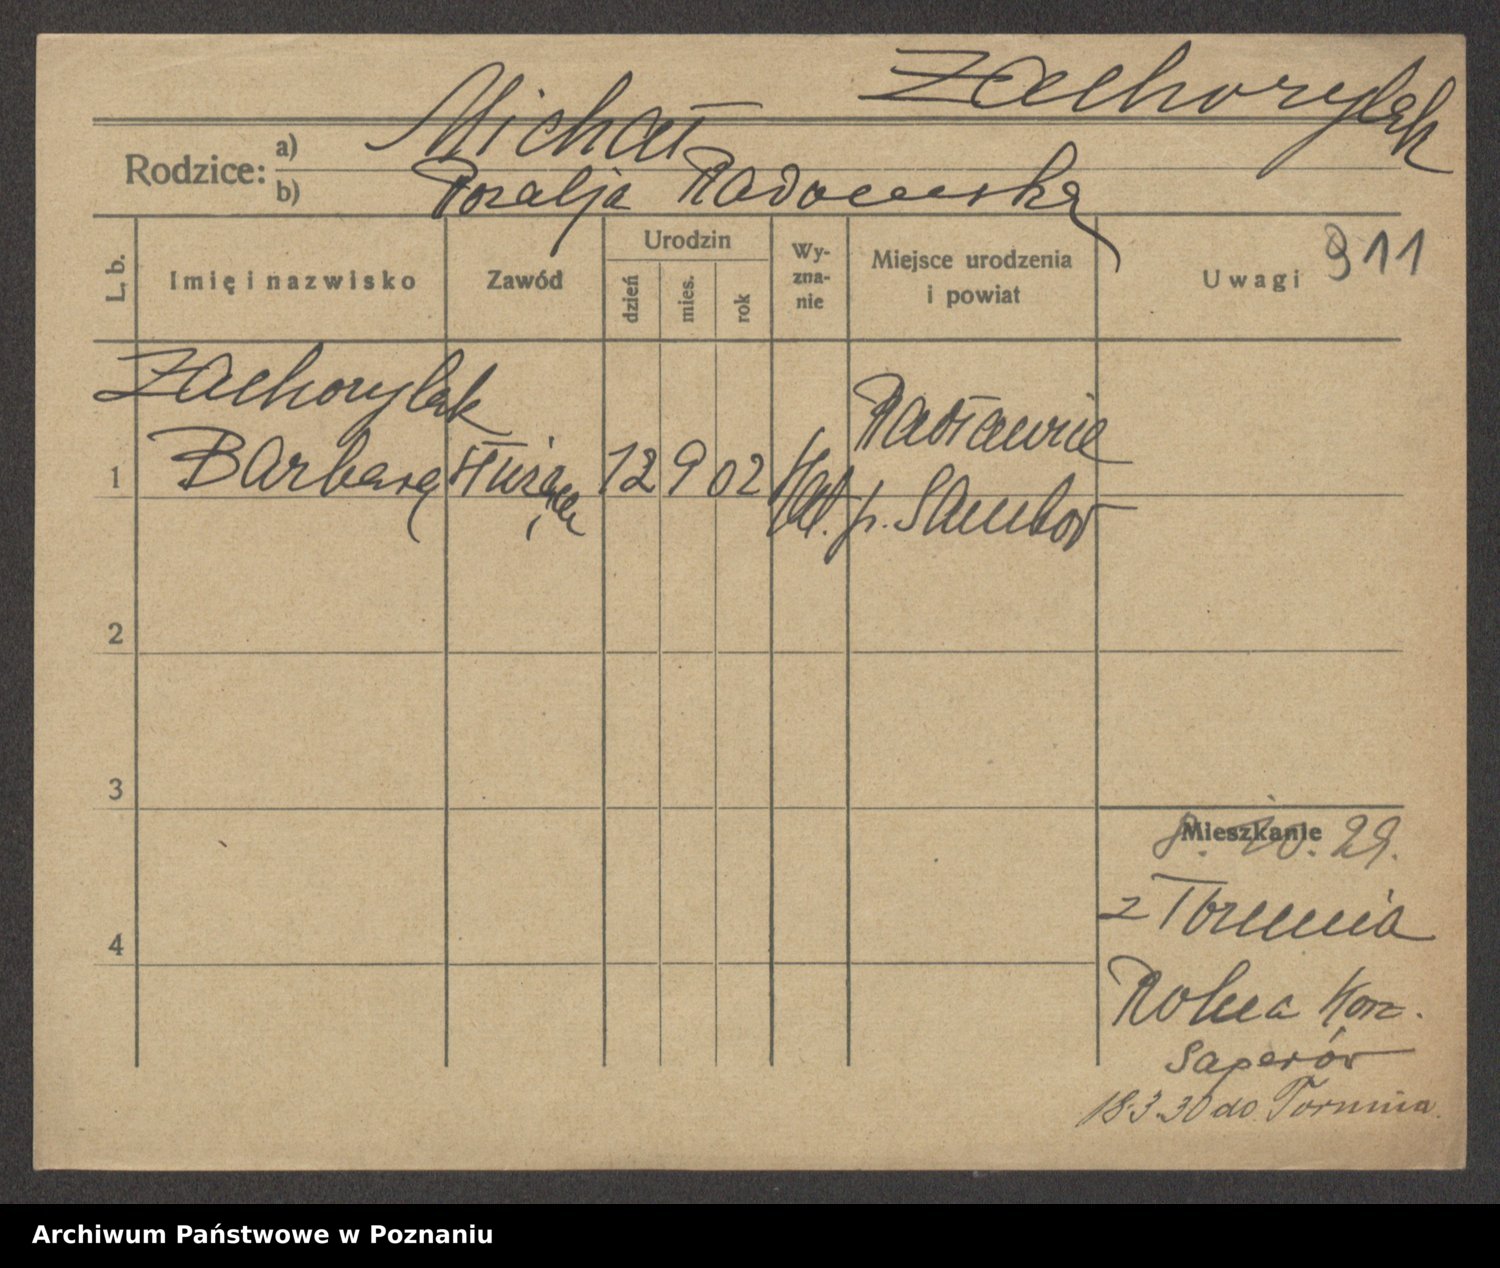 Zachorylak
Rodzice:
a) Michał
b) Rozalja Radomska
L. b.
Imię i nazwisko
Zawód
Urodzin
dzień
mies.
rok
Wy-
zna-
nie
Miejsce urodzenia
i powiat
Uwagi
911
Zachorylak
1 Barbara służąca 12 9 02 kat.
Radławice
p. Sambor
2
3
4
Mieszkanie
8. 10. 29.
z Torunia
Rolna Kosz.
Saperów
18.3.30 do Torunia.
Archiwum Państwowe w Poznaniu